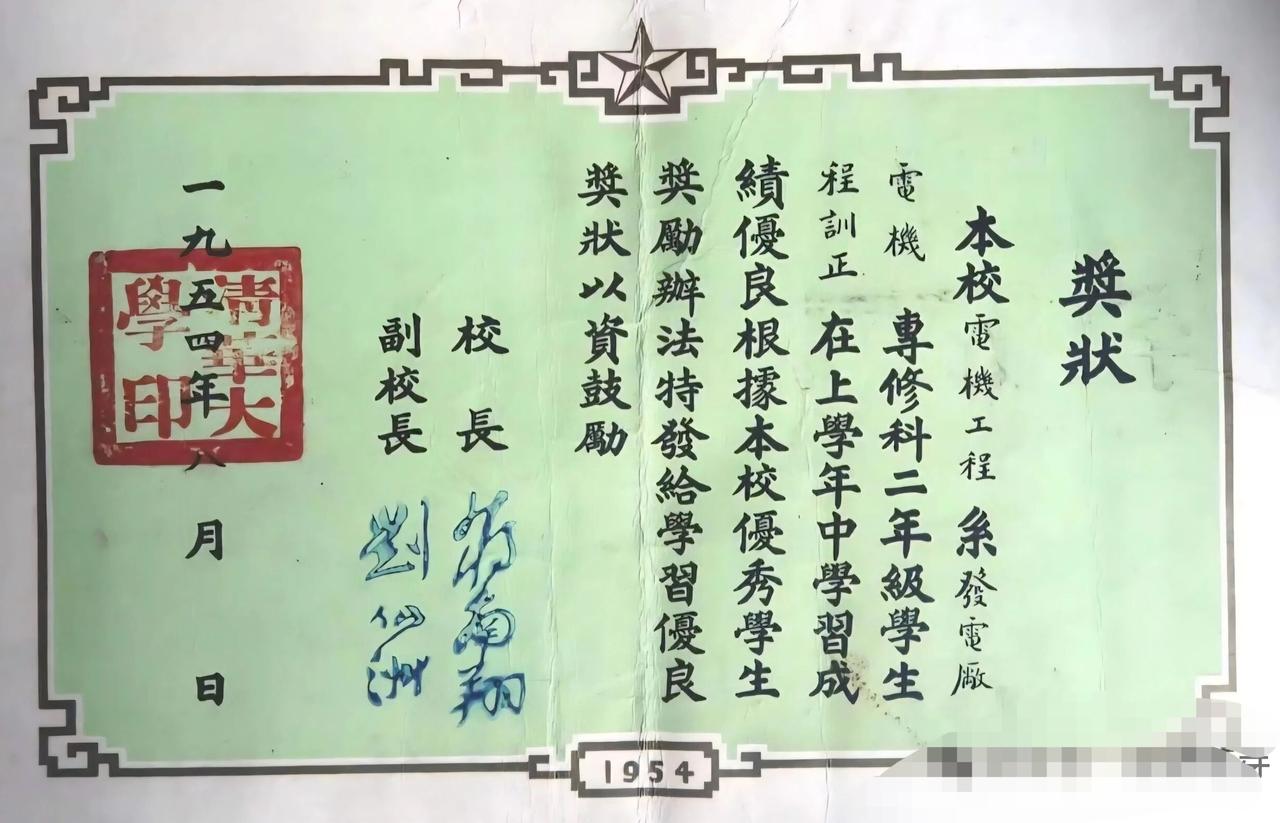 獎狀
本校電機工程系發電廠
電機 專修科二年級學生
程訓正 在上學年中學習成
績優良根據本校優秀學生
獎勵辦法特發給學習優良
獎狀以資鼓勵
校長 蔣南翔
副校長 劉仙洲
一九五四年八月 日
清華大學印
1954